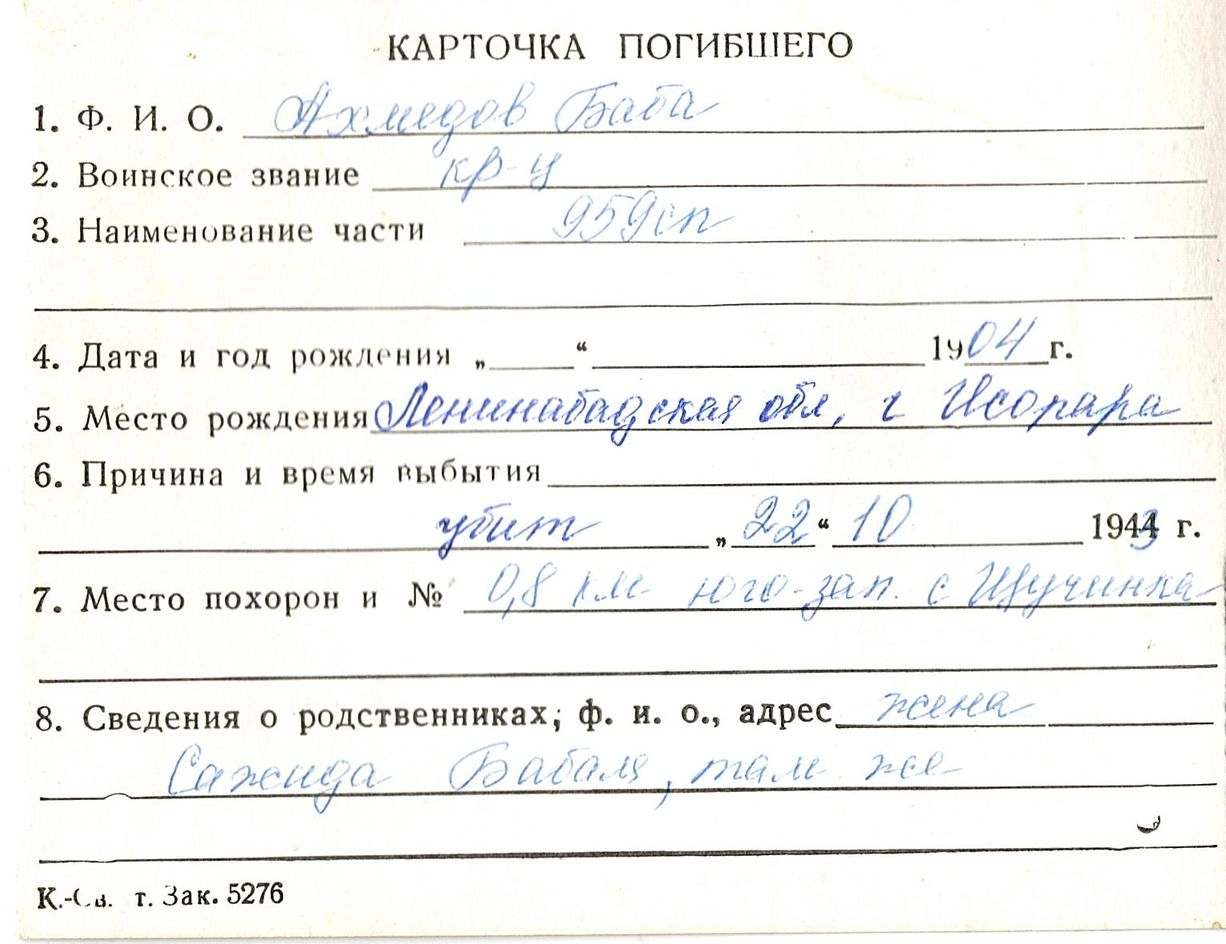 КАРТОЧКА ПОГИБШЕГО
1. Ф. И. О. Ахмедов Баба
2. Воинское звание кр-ц
3. Наименование части 959сп
4. Дата и год рождения „ “ 1904 г.
5. Место рождения Ленинабадская обл, г Исопара
6. Причина и время выбытия
убит „22“ 10 1943 г.
7. Место похорон и № 0,8 км юго-зап. с Щучинка
8. Сведения о родственниках; ф. и. о., адрес жена
Саженда Бабаля, там же
т. Зак. 5276